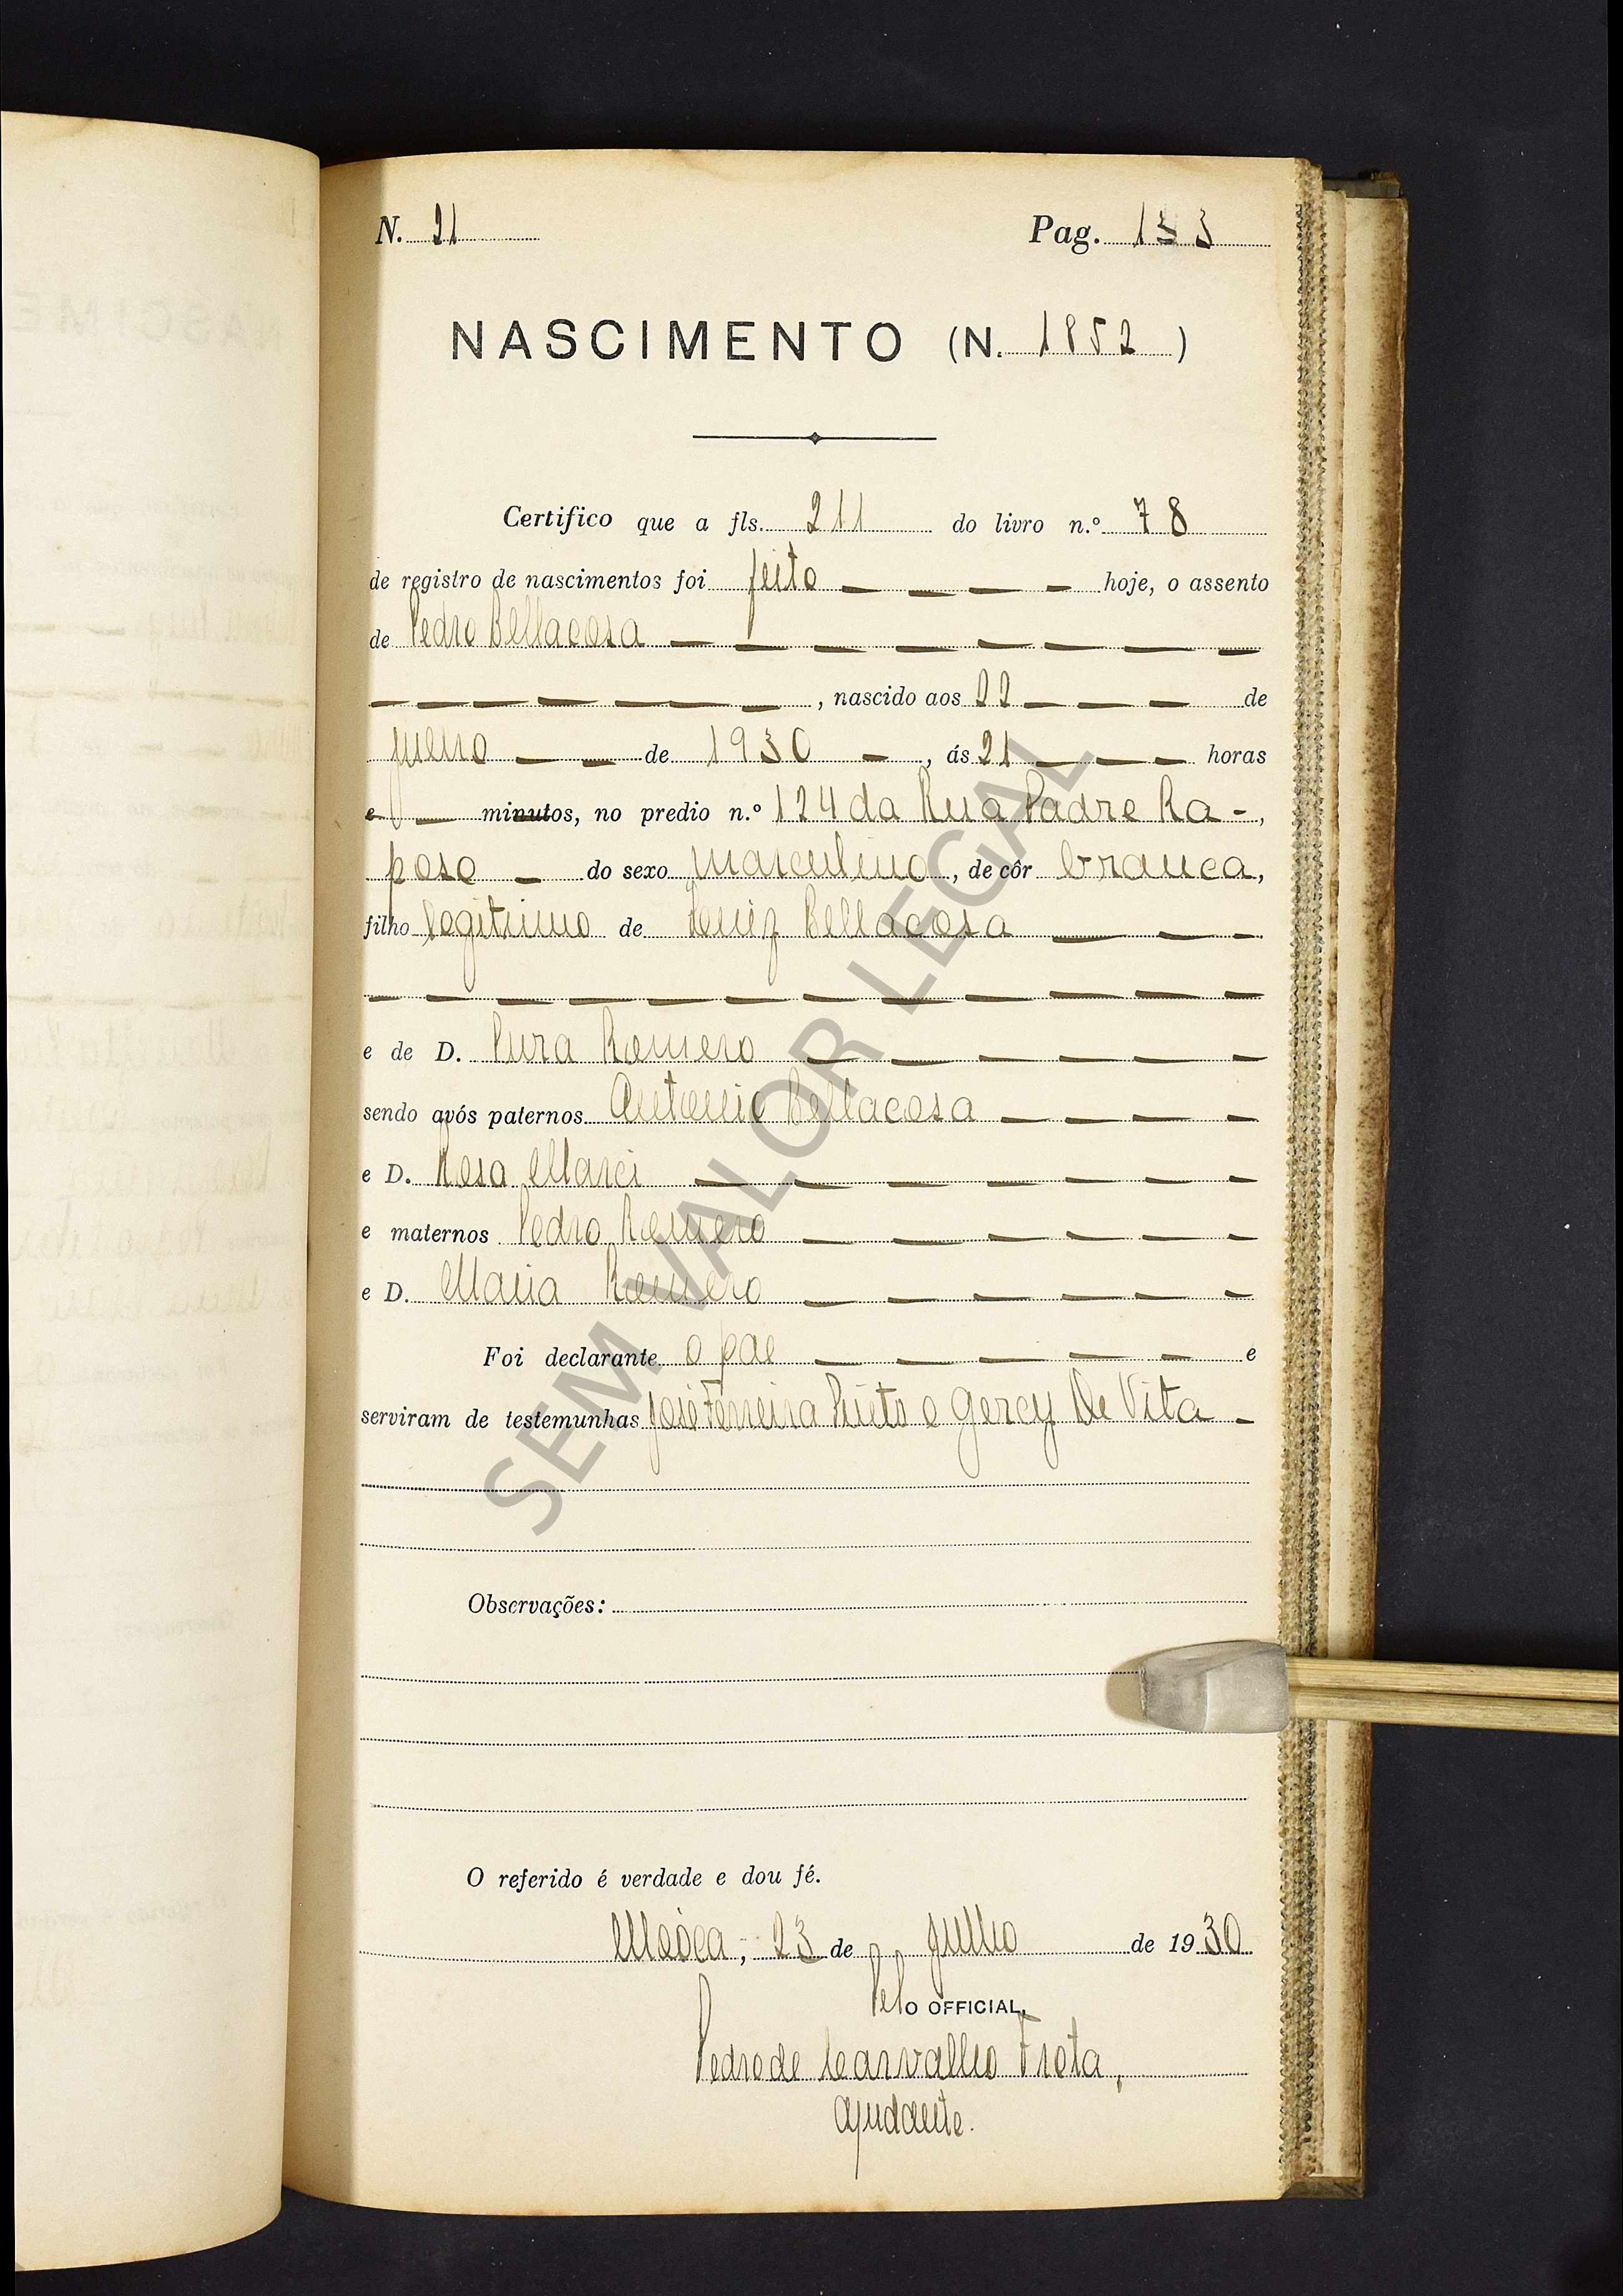 N. 21 Pag. 133
NASCIMENTO (N. 1852)
Certifico que a fls. 211 do livro n.º 78
de registro de nascimentos foi feito hoje, o assento
de Pedro Bellacosa
, nascido aos 22 de
julho de 1930, ás 21 horas
e minutos, no predio n.º 124 da Rua Padre Ra-,
poso do sexo masculino, de côr branca,
filho legitimo de Luiz Bellacosa
e de D. Pura Romero
sendo avós paternos Antonio Bellacosa
e D. Rosa Marci
e maternos Pedro Romero
e D. Maria Romero
Foi declarante o pae e
serviram de testemunhas José Ferreira Pinto e Gercy De Vita
Observações:
O referido é verdade e dou fé.
Moóca, 23 de julho de 1930
Pelo OFFICIAL,
Pedro de Carvalho Frota,
ajudante.
SEM VALOR LEGAL